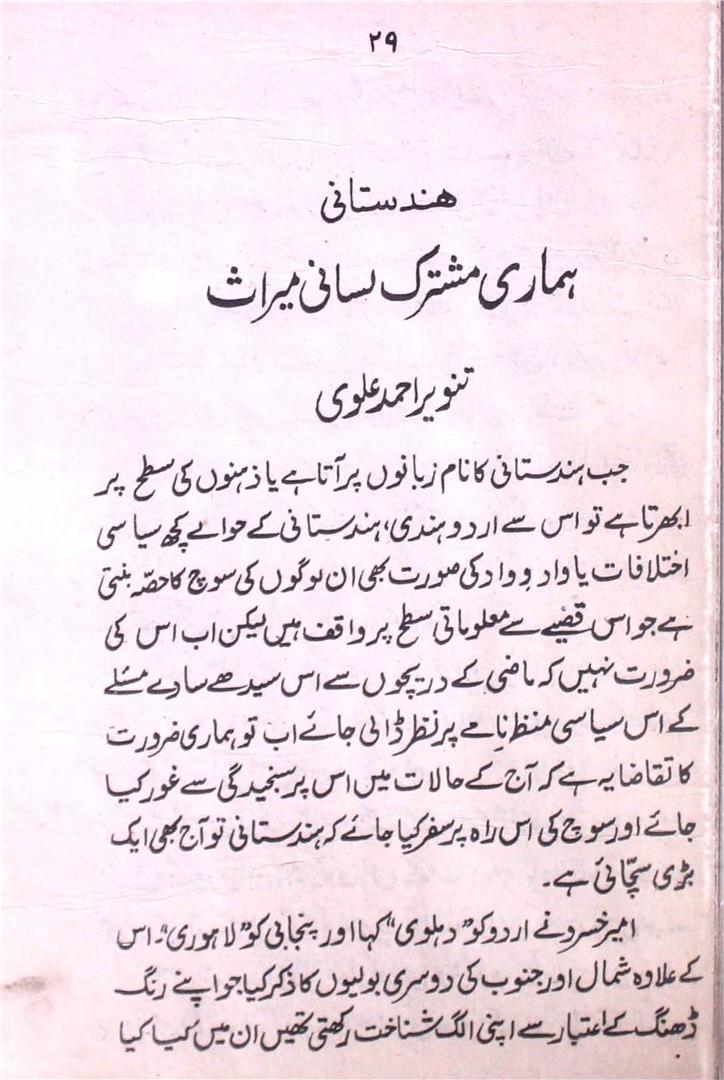 ۲۹
ھندستانی
ہماری مشترک لسانی میراث
تنویر احمد علوی
جب ہندستانی کا نام زبانوں پر آتا ہے یا ذہنوں کی سطح پر
ابھرتا ہے تو اس سے اردو ہندی، ہندستانی کے حوالے کچھ سیاسی
اختلافات یا واد و واد کی صورت بھی ان لوگوں کی سوچ کا حصّہ بنتی
ہے جو اس قضیے سے معلوماتی سطح پر واقف ہیں لیکن اب اس کی
ضرورت نہیں کہ ماضی کے دریچوں سے اس سیدھے سادے مسئلے
کے اس سیاسی منظر نامے پر نظر ڈالی جائے اب تو ہماری ضرورت
کا تقاضا یہ ہے کہ آج کے حالات میں اس پر سنجیدگی سے غور کیا
جائے اور سوچ کی اس راہ پر سفر کیا جائے کہ ہندستانی تو آج بھی ایک
بڑی سچّائی ہے۔
امیر خسرو نے اردو کو "دہلوی" کہا اور پنجابی کو "لاہوری"۔ اس
کے علاوہ شمال اور جنوب کی دوسری بولیوں کا ذکر کیا جو اپنے رنگ
ڈھنگ کے اعتبار سے اپنی الگ شناخت رکھتی تھیں ان میں کیا کیا